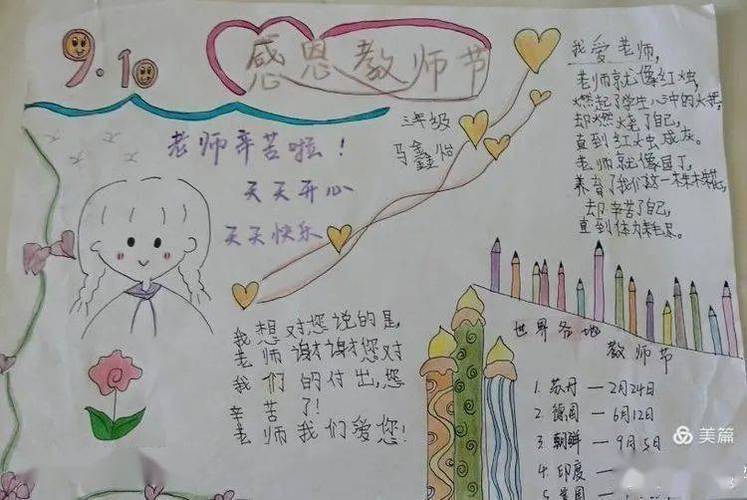 9.10
感恩教师节
三年级
马鑫怡
老师辛苦啦！
天天开心
天天快乐
我爱老师，
老师就像红烛，
燃起了学生心中的火苗，
却燃烧了自己，
直到红烛成灰。
老师就像园丁，
养育了我们这一株株花，
却辛苦了自己，
直到体力耗尽。
我想对您说的是，
老师谢谢谢谢您对
我们的付出，您
辛苦了！
老师我们爱您！
世界各地
教师节
1. 苏丹 — 2月24日
2. 德国 — 6月12日
3. 朝鲜 — 9月5日
4. 印度 —
美篇